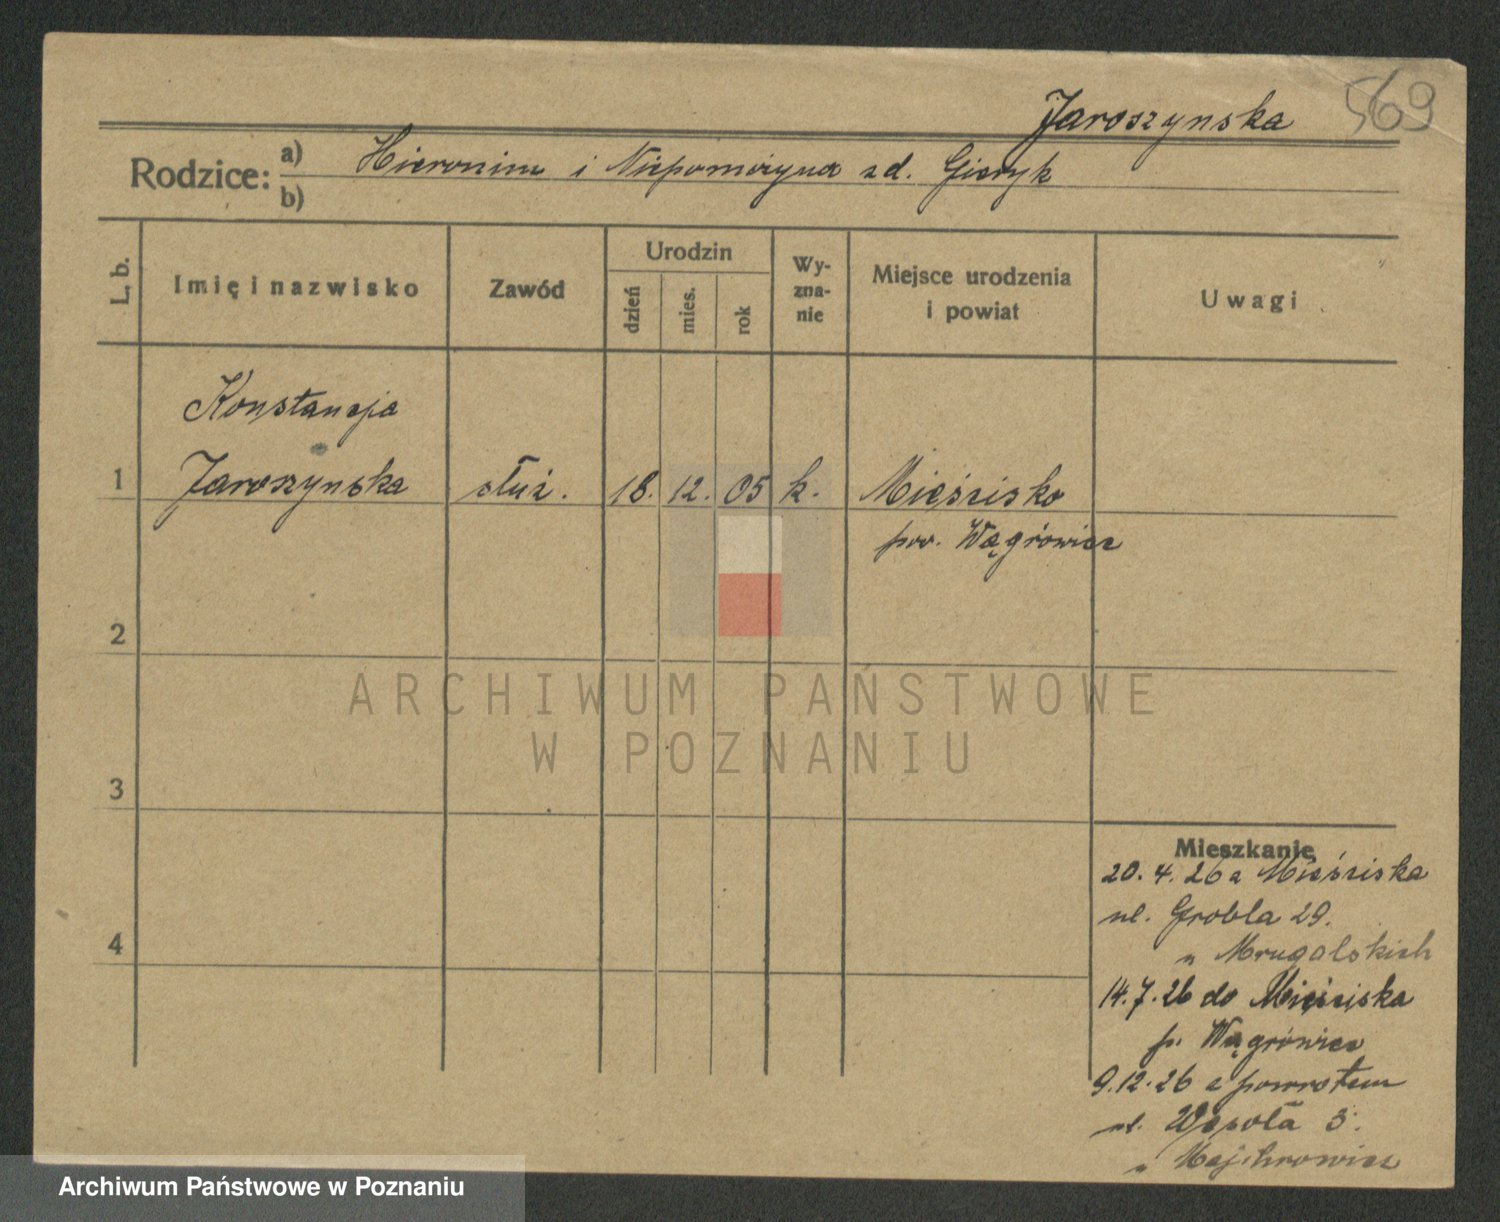 569
Jaroszynska
Rodzice: a) Hieronim i Niepomożyna zd. Gieryk
b)
L. b.
Imię i nazwisko
Zawód
Urodzin
dzień
mies.
rok
Wy-
zna-
nie
Miejsce urodzenia
i powiat
Uwagi
Konstancja
1 Jaroszynska służ. 18. 12. 05 k. Mieścisko
pow. Wągrówiec
2
ARCHIWUM PAŃSTWOWE
W POZNANIU
3
4
Mieszkanie
20. 4. 26 z Mieściska
ul. Grobla 29.
" Mrugalskich
14. 7. 26 do Mieściska
p. Wągrówiec
9. 12. 26 z powrotem
ul. Wesoła 3.
" Majchrowicz
Archiwum Państwowe w Poznaniu